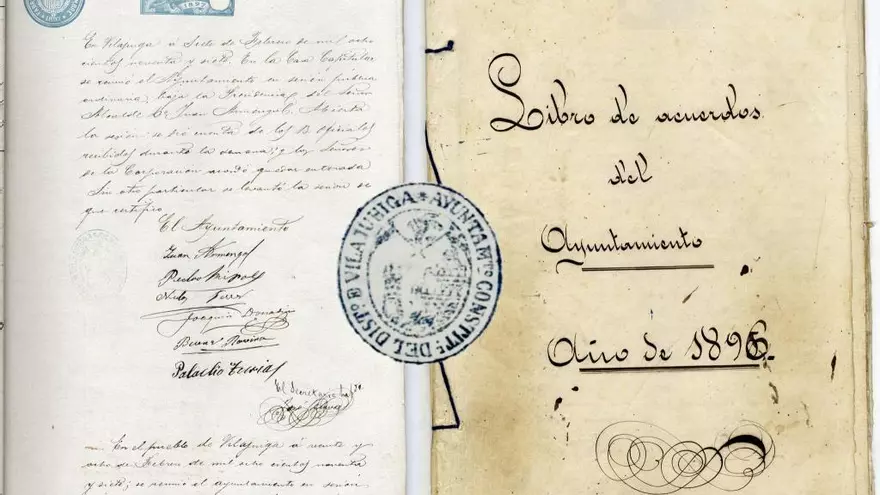 1897
En Vilajuiga á Siete de Febrero de mil ocho
cientos noventa y siete. En la Casa Capitular
se reunió el Ayuntamiento en sesión pública
ordinaria, bajo la Presidencia del Señor
Alcalde Dn Juan Armengol. Abierta
la sesión se dió cuenta de los B. Oficiales
recibidos durante la semana; y los Señores
de la Corporación acordó quedar enterada
Sin otro particular se levantó la sesión de
que certifico.
El Ayuntamiento
Juan Armengol
Pedro Ripoll
Ferrer
Joaquin
Palacio
El Secretario
José
En el pueblo de Vilajuiga á veinte y
ocho de Febrero de mil ocho cientos noventa
y siete; se reunió el ayuntamiento en sesión
AYUNTAMTO CONSTITNO DEL DISTO DE VILAJUHIGA
Libro de acuerdos
del
Ayuntamiento
Año de 1896.